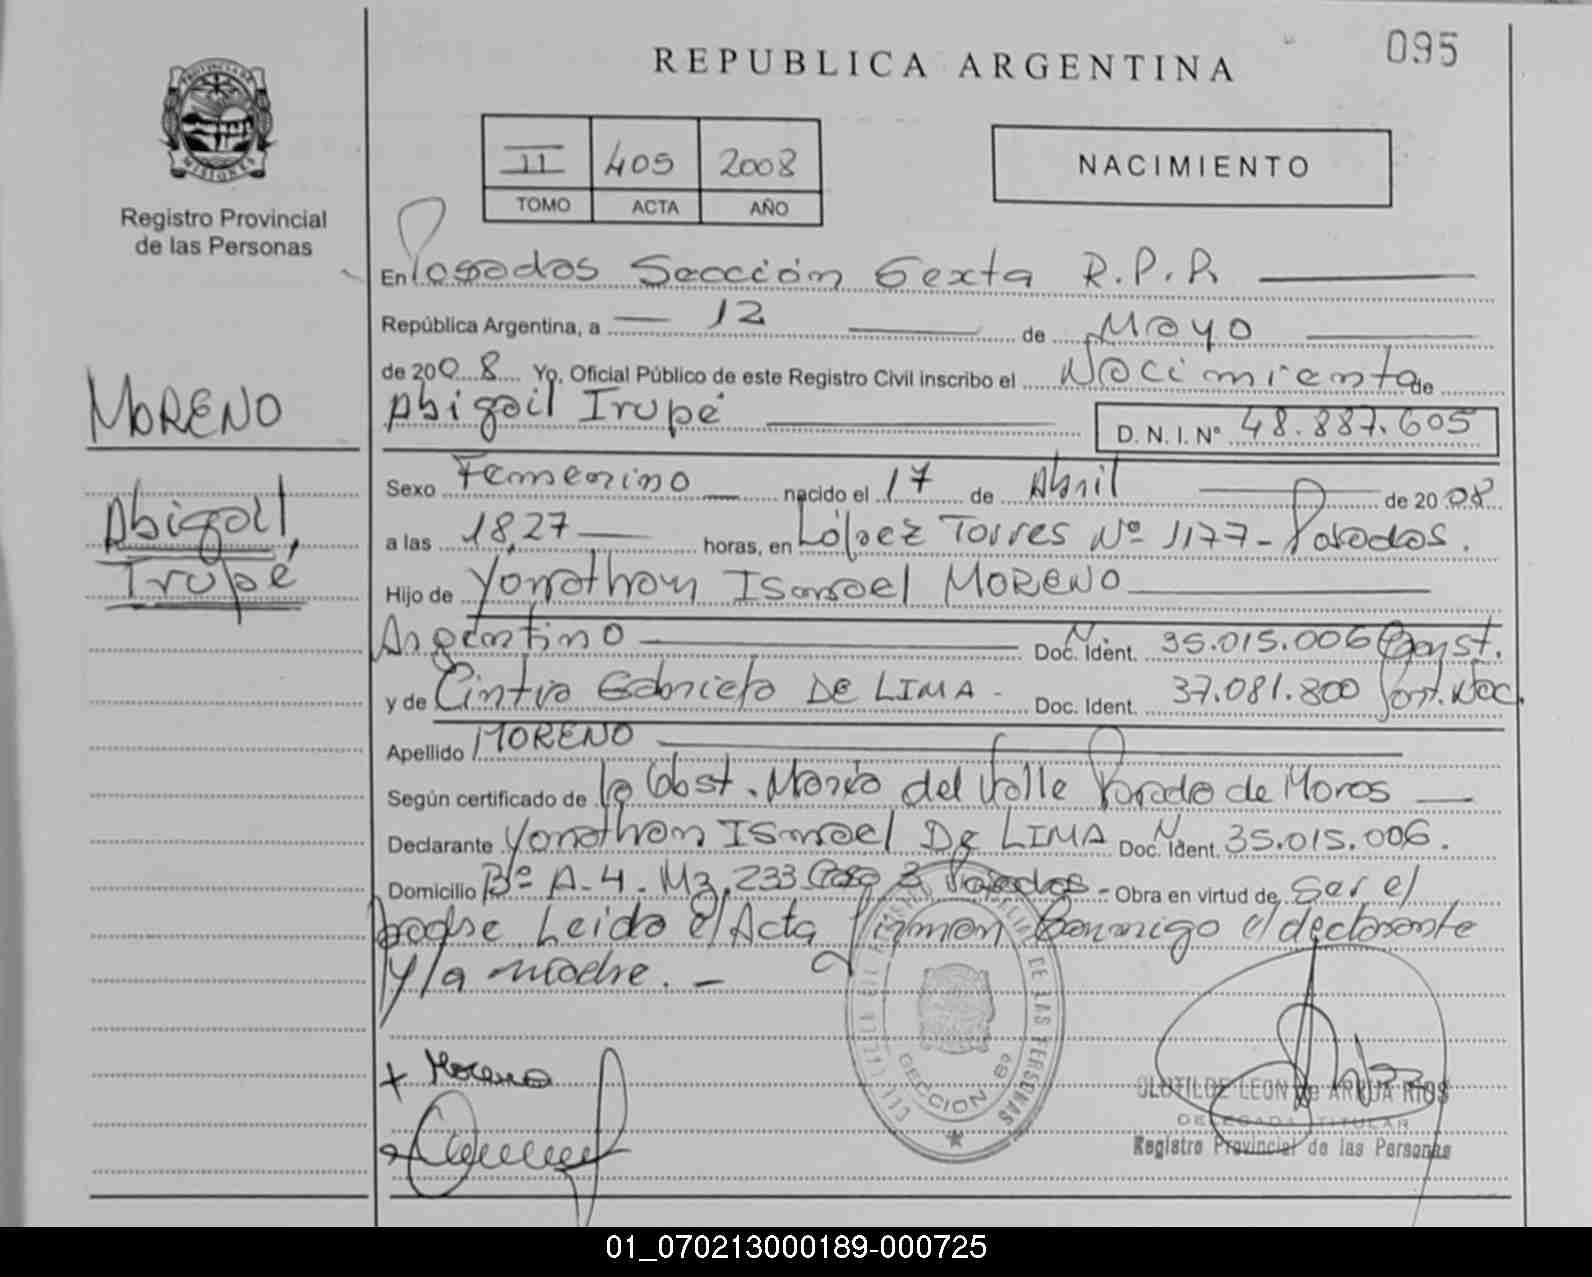 095
REPUBLICA ARGENTINA
PROVINCIA DE
MISIONES
Registro Provincial
de las Personas
II 405 2008
TOMO ACTA AÑO
NACIMIENTO
En Posadas Sección Sexta R.P.P.
República Argentina, a 12 de Mayo
de 2008 Yo, Oficial Público de este Registro Civil inscribo el Nacimiento de
Abigail Irupé D.N.I. Nº 48.887.605
MORENO
Abigail,
Irupé
Sexo Femenino nacido el 17 de Abril de 2008
a las 18,27 horas, en López Torres Nº 1177 - Posadas.
Hijo de Yonathan Ismael MORENO
Argentino Doc. Ident. 35.015.006 Const.
y de Cintia Gabriela DE LIMA - Doc. Ident. 37.081.800
Apellido MORENO
Según certificado de la Obst. María del Valle Parado de Moras
Declarante Yonathan Ismael DE LIMA Doc. Ident. 35.015.006.
Domicilio Bº A-4. Mz. 233 Casa 3 Posadas - Obra en virtud de Ser el
padre Leido el Acta firman Conmigo el declarante
y la madre. -
DE LAS PERSONAS
SECCION 6ª
+ Moreno
CLOTILDE LEON de ARRUA RIOS
DELEGADA TITULAR
Registro Provincial de las Personas
01_070213000189-000725